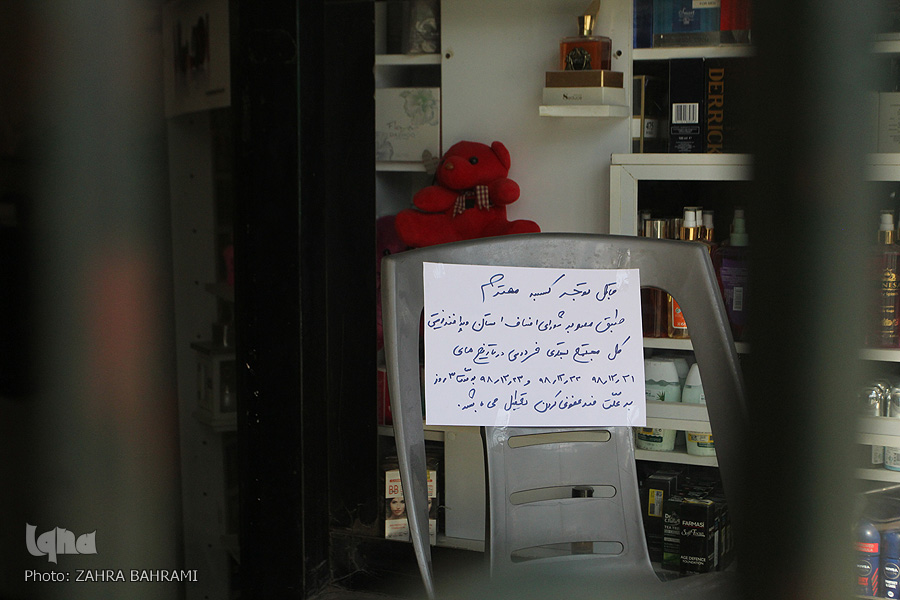 قابل توجه کسبه محترم
طبق مصوبه شورای اصناف استان و
کل مجتمع تجاری فردوسی در تاریخ های
۹۸/۱۲/۲۱ ۹۸/۱۲/۲۲ و ۹۸/۱۲/۲۳ به مدت ۳ روز
به علت ضدعفونی کردن تعطیل می باشد.
DERRICK
FARMASi
BB
AGE DEFENCE
iqna
Photo: ZAHRA BAHRAMI